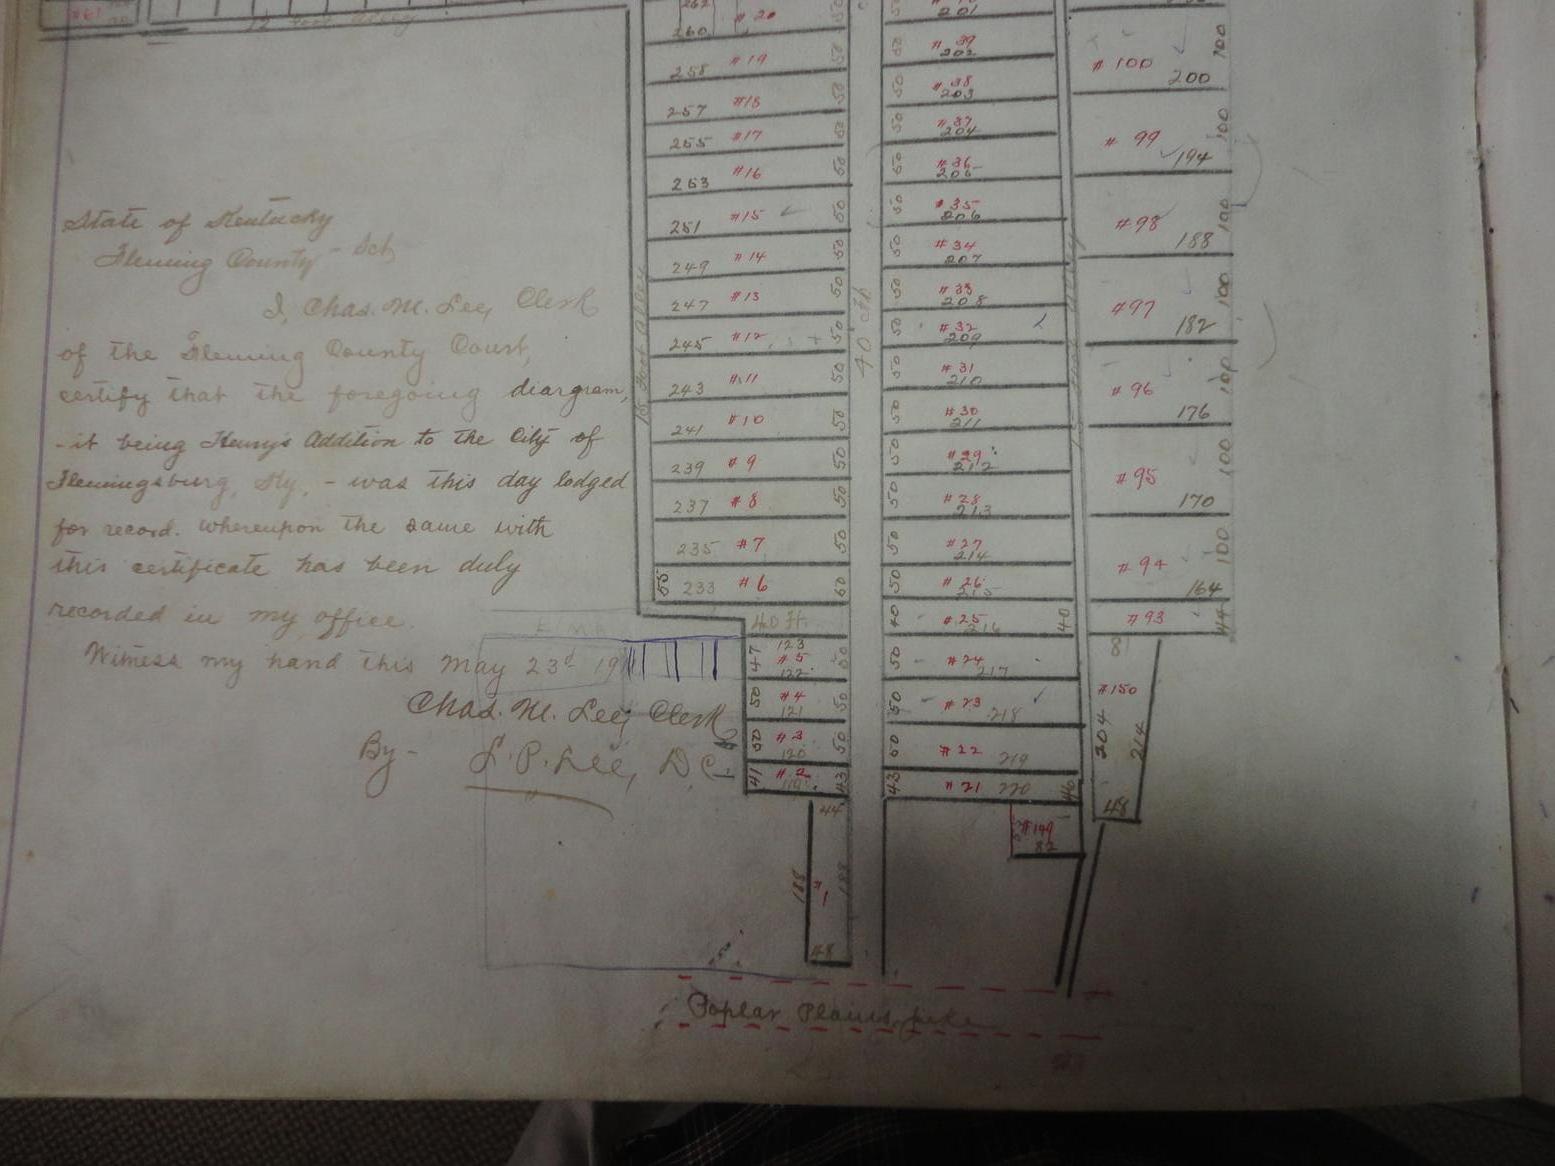 12 Foot Alley
State of Kentucky
Fleming County - Sct
I, Chas. M. Lee, Clerk
of the Fleming County Court,
certify that the foregoing diargram,
- it being Henry's Addition to the City of
Flemingsburg, Ky, - was this day lodged
for record. Whereupon the same with
this certificate has been duly
recorded in my office.
Witness my hand this May 23d 19
Chas. M. Lee, Clerk
By - L. P. Lee, D.C.
260 #20 50
258 #19 50
257 #18 50
255 #17 50
253 #16 50
251 #15 50
249 #14 50
247 #13 50
245 #12 50
243 #11 50
241 #10 50
239 #9 50
237 #8 50
235 #7 50
55 233 #6 60
40 ft
123
47 #5 50
122
50 #4 50
121
50 #3 50
120
41 #2 43
119
44
188 #1 188
48
15 Foot Alley
40 ft
50 201
50 #39 202
50 #38 203
50 #37 204
50 #36 205
50 #35 206
50 #34 207
50 #33 208
50 #32 209
50 #31 210
50 #30 211
50 #29 212
50 #28 213
50 #27 214
50 #26 215
40 #25 216 40
50 #24 217
50 #23 218
60 #22 219
43 #21 220 46
#149
82
#100 200 100
#99 194 100
#98 188 100
#97 182 100
#96 176 100
#95 170 100
#94 164 100
#93 44
81
#150
204 214
48
Poplar Plains pike